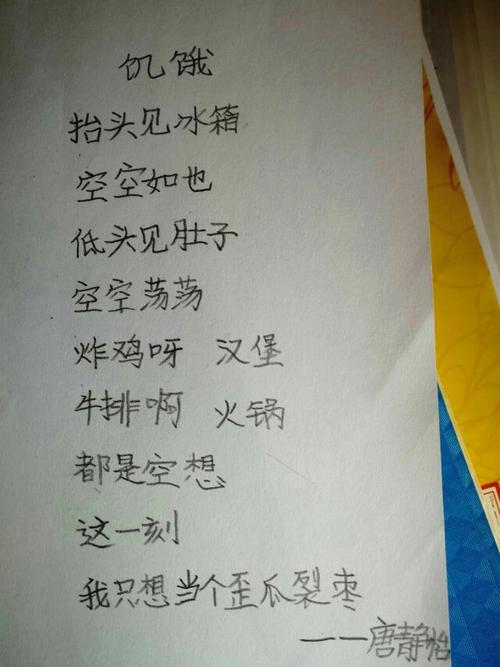 饥饿
抬头见冰箱
空空如也
低头见肚子
空空荡荡
炸鸡呀 汉堡
牛排啊 火锅
都是空想
这一刻
我只想当个歪瓜裂枣
——唐静怡